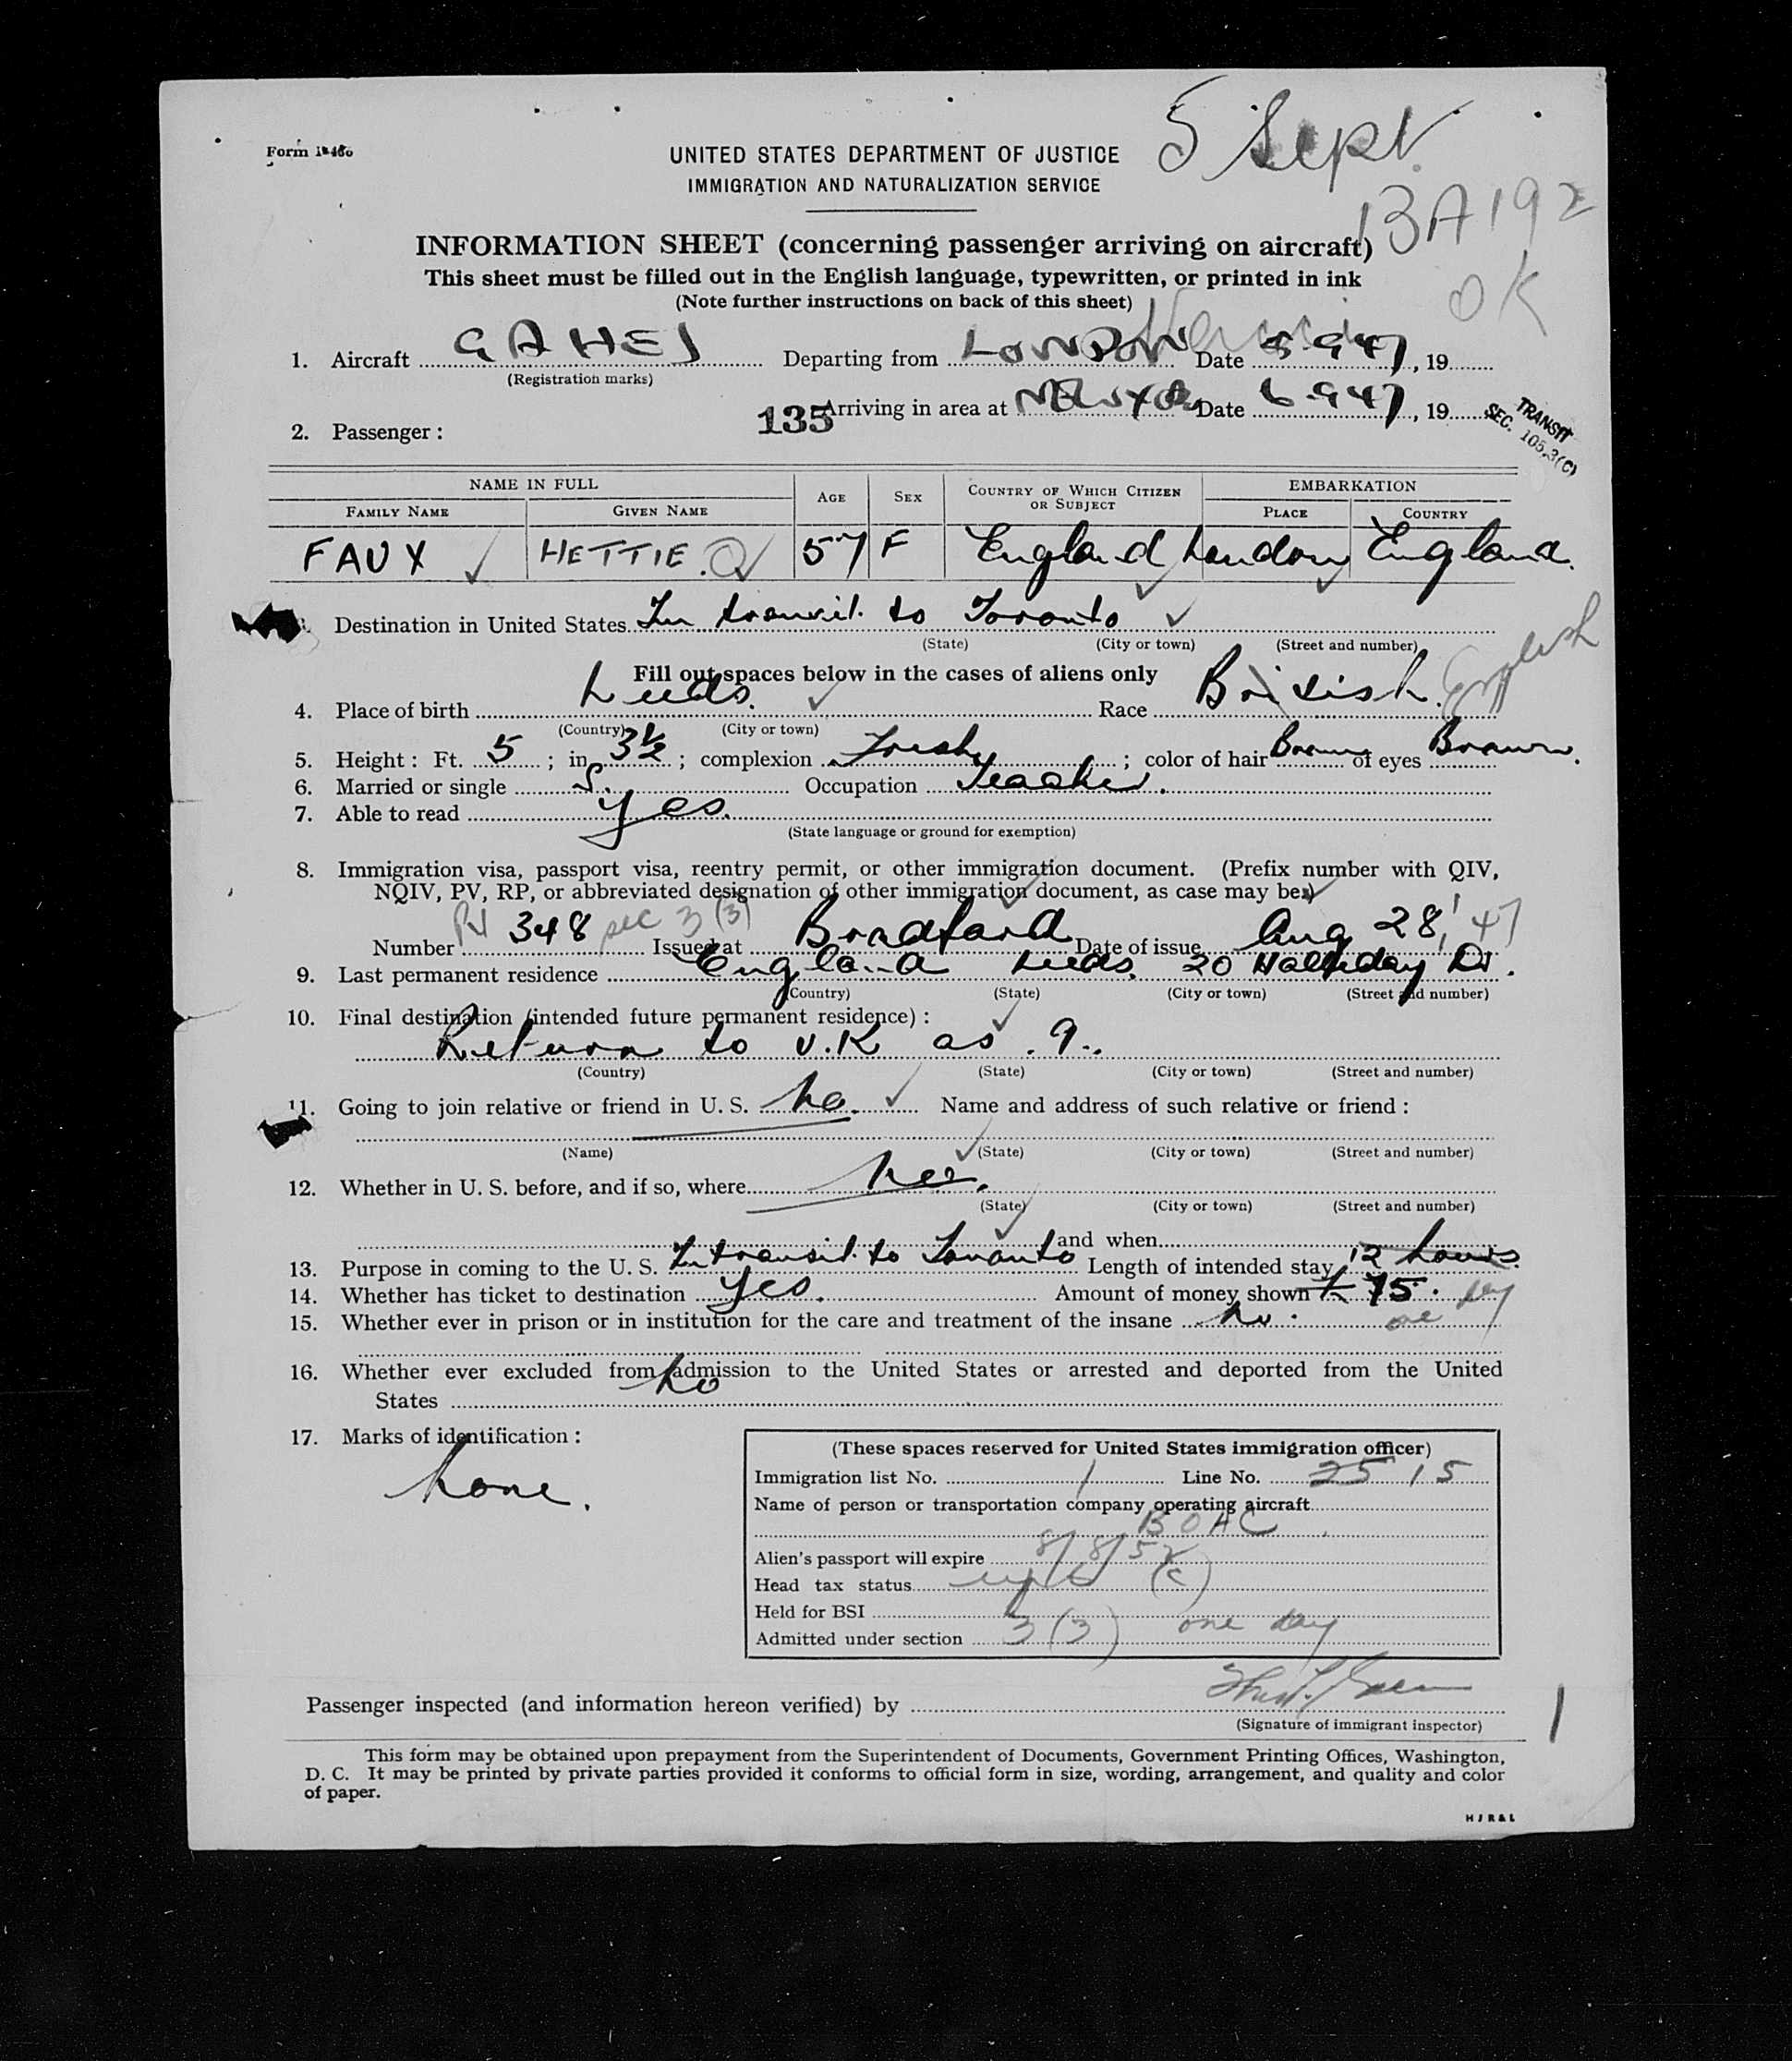 5 Sept
Form I-466
UNITED STATES DEPARTMENT OF JUSTICE
IMMIGRATION AND NATURALIZATION SERVICE
BA192
INFORMATION SHEET (concerning passenger arriving on aircraft)
This sheet must be filled out in the English language, typewritten, or printed in ink
OK
(Note further instructions on back of this sheet)
1. Aircraft GAHEJ Departing from LONDON Date 5.9.47, 19
(Registration marks)
135 Arriving in area at NEW YORK Date 6.9.47, 19
TRANSIT
SEC. 105.3(C)
2. Passenger:
NAME IN FULL AGE SEX COUNTRY OF WHICH CITIZEN OR SUBJECT EMBARKATION
FAMILY NAME GIVEN NAME PLACE COUNTRY
FAUX HETTIE. 57 F England London England.
Destination in United States In transit to Toronto
(State) (City or town) (Street and number)
Fill out spaces below in the cases of aliens only
4. Place of birth Leeds. Race British. English
(Country) (City or town)
5. Height: Ft. 5; in. 3½; complexion Fresh; color of hair Brown of eyes Brown.
6. Married or single S. Occupation Teacher.
7. Able to read Yes.
(State language or ground for exemption)
8. Immigration visa, passport visa, reentry permit, or other immigration document. (Prefix number with QIV,
NQIV, PV, RP, or abbreviated designation of other immigration document, as case may be.)
Number PV 348 sec 3 (3) Issued at Bradford Date of issue Aug 28, '47
9. Last permanent residence England Leeds. 20 Halliday Dr.
(Country) (State) (City or town) (Street and number)
10. Final destination (intended future permanent residence):
Return to U.K as .9..
(Country) (State) (City or town) (Street and number)
11. Going to join relative or friend in U. S. No. Name and address of such relative or friend:
(Name) (State) (City or town) (Street and number)
12. Whether in U. S. before, and if so, where No.
(State) (City or town) (Street and number)
and when
13. Purpose in coming to the U. S. In transit to Toronto Length of intended stay 12 hours.
14. Whether has ticket to destination Yes. Amount of money shown £ 75. day
15. Whether ever in prison or in institution for the care and treatment of the insane No. one
16. Whether ever excluded from admission to the United States or arrested and deported from the United
States No
17. Marks of identification:
None.
(These spaces reserved for United States immigration officer)
Immigration list No. 1 Line No. 25 15
Name of person or transportation company operating aircraft
BOAC
Alien's passport will expire 8/8/52
Head tax status (c)
Held for BSI
Admitted under section 3 (3) one day
Passenger inspected (and information hereon verified) by
(Signature of immigrant inspector)
This form may be obtained upon prepayment from the Superintendent of Documents, Government Printing Offices, Washington,
D. C. It may be printed by private parties provided it conforms to official form in size, wording, arrangement, and quality and color
of paper.
H J R & L